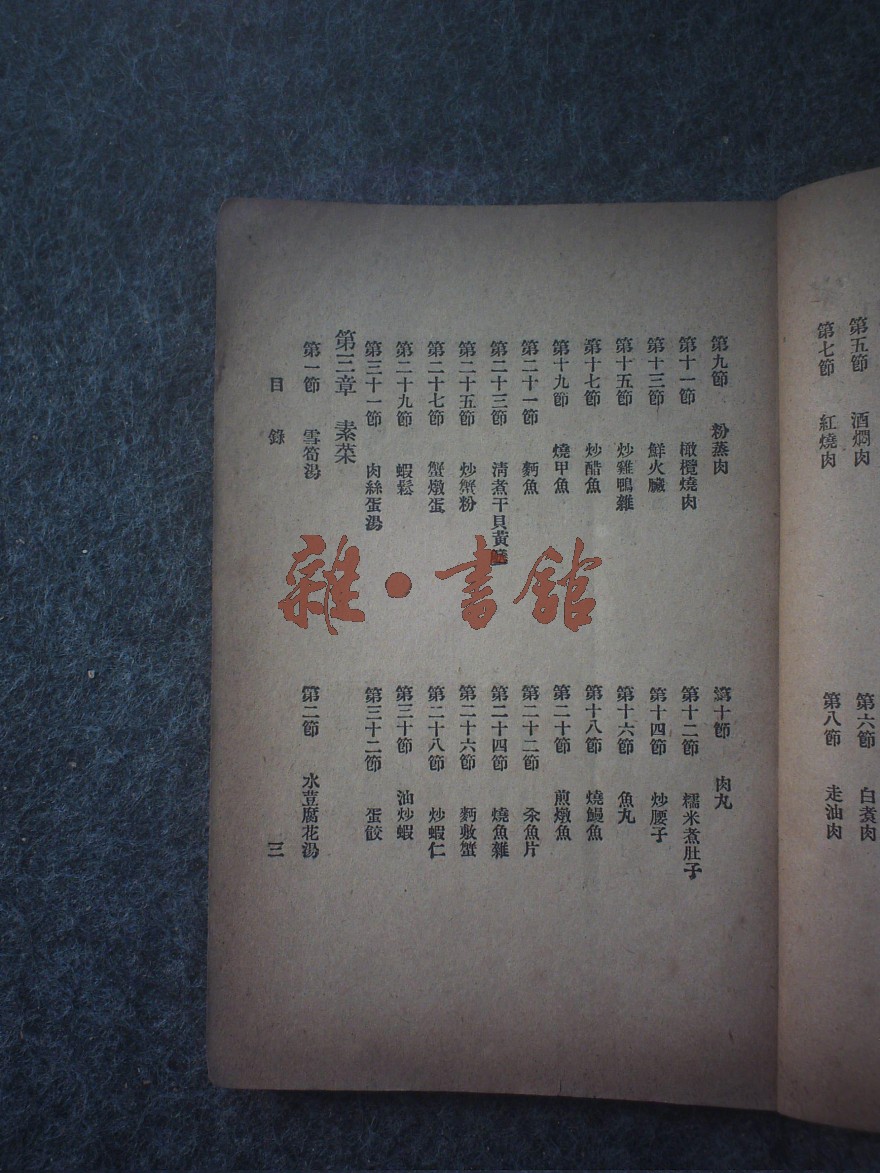 第五節　酒燜肉　第六節　白煑肉
第七節　紅燒肉　第八節　走油肉
第九節　粉蒸肉　第十節　肉丸
第十一節　橄欖燒肉　第十二節　糯米煮肚子
第十三節　鮮火臟　第十四節　炒腰子
第十五節　炒雞鴨雜　第十六節　魚丸
第十七節　炒醋魚　第十八節　燒鰻魚
第十九節　燒甲魚　第二十節　煎燉魚
第二十一節　麪魚　第二十二節　汆魚片
第二十三節　清煮干貝黃　第二十四節　燒魚雜
第二十五節　炒蟹粉　第二十六節　麪敷蟹
第二十七節　蟹燉蛋　第二十八節　炒蝦仁
第二十九節　蝦鬆　第三十節　油炒蝦
第三十一節　肉絲蛋湯　第三十二節　蛋餃
第三章　素菜
第一節　雪筍湯　第二節　水荳腐花湯
目錄　三
雜·書館